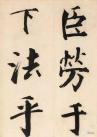 臣劳于
下法乎